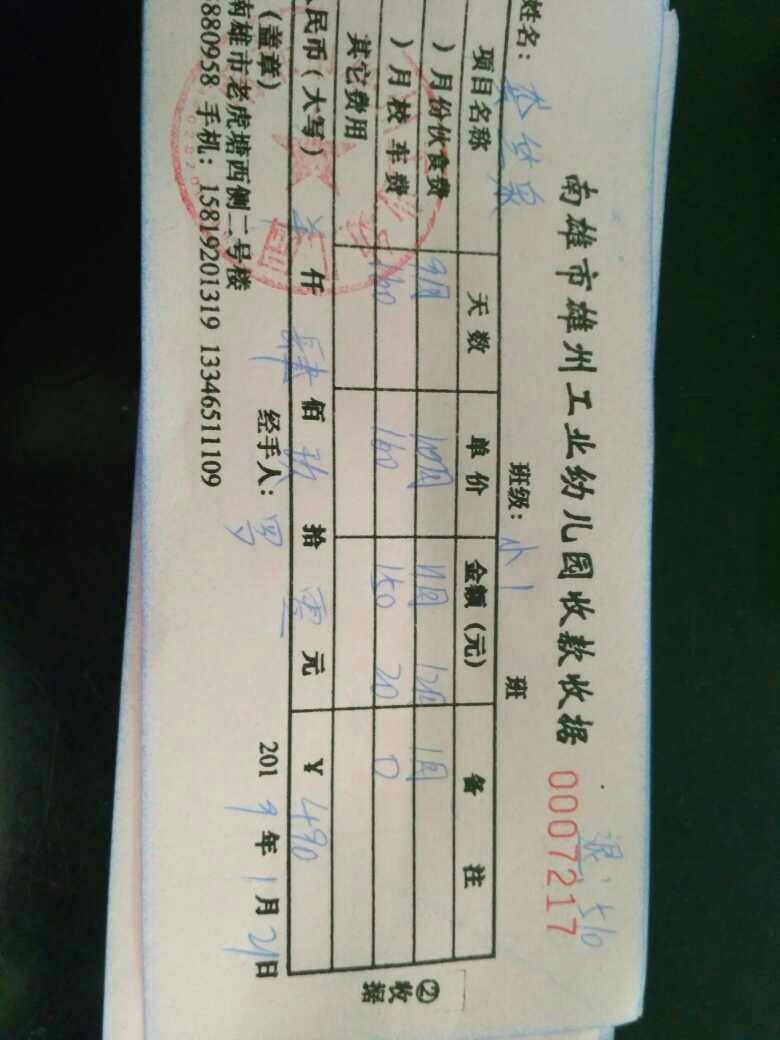 南雄市雄州工业幼儿园收款收据
0007217
退:510
姓名:
班级: 小1 班
项目名称 天数 单价 金额(元) 备注
)月份伙食费 9月 10月 11月 12月 1月
)月校车费 160 160 150 20 0
其它费用
民币(大写) 仟 肆 佰 玖 拾 零 元 ¥ 490
(盖章) 经手人: 201 9 年 1 月 21 日
南雄市老虎塘西侧二号楼
880958 手机: 15819201319 13346511109
②收据